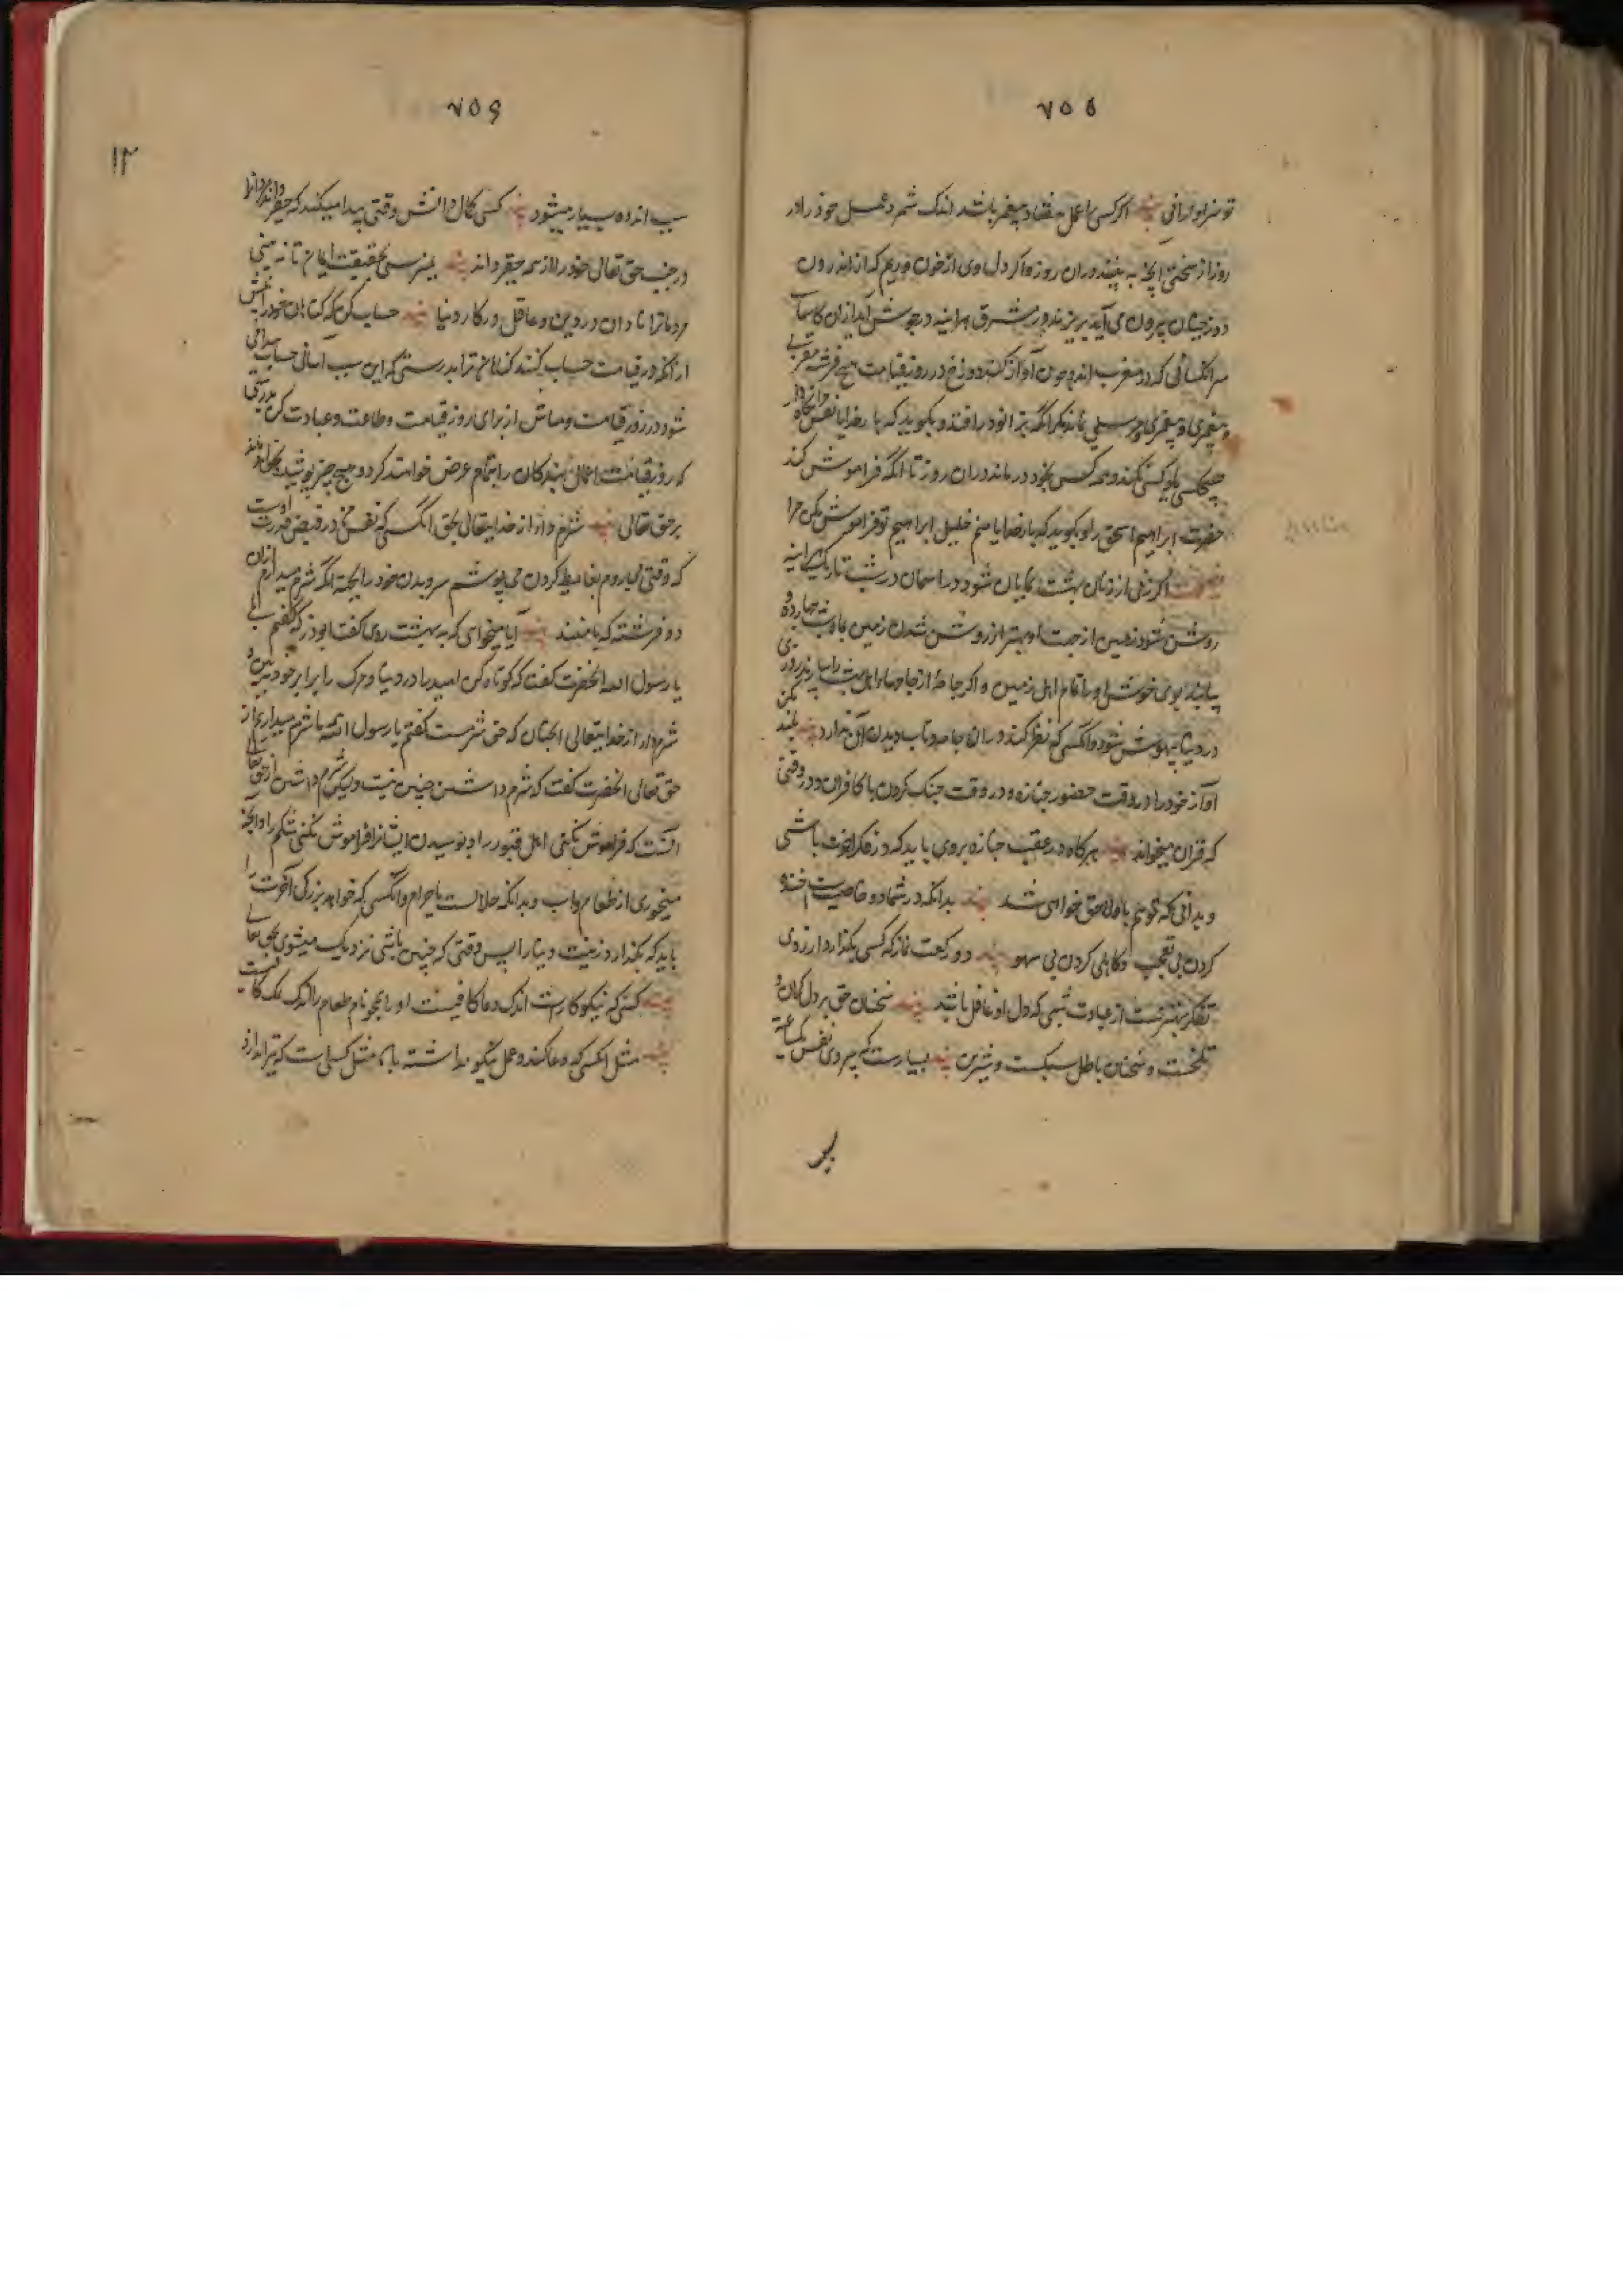 ٧٥٥
تو سزاوارانی پند اگر کسی را عمل هفتاد پیغمبر باشد اندک شمرد عمل خود را در
روز از سختی آنچه به بیند در آن روز و اگر دلوی از خون و ریم که از اندرون
دوزخیان بیرون می آید بریزند در مشرق هر آینه در جوش آید از آن کاسهای
سر آنکسانی که در مغرب اند و چون آواز کند دوزخ در روز قیامت هیچ فرشته مقربی
و پیغمبری مرسلی نماند مگر آنکه بزانو در افتد و بگوید که بار خدایا نفس مرا نگاه دار
هیچکس یاد کسی نکند و همه کس بخود در ماند در آن روز تا آنکه فراموش کند
حضرت ابراهیم اسحق را و بگوید که بار خدایا منم خلیل ابراهیم تو فراموش مکن مرا
اگر زنی از زنان بهشت نمایان شود در آسمان در شب تاریک هر آینه
روشن شود زمین از جهت او بهتر از روشن شدن زمین بماه شب چهارده و
بیابند بوی خوش او را تمام اهل زمین و اگر جامهٔ از جامهای اهل بهشت را
در دنیا بیهوش شود و آنکسی که نظر کند در آن جامه و تاب دیدن آن ندارد پند بلند مکن
آواز خود را در وقت حضور جنازه و در وقت جنگ کردن با کافران و در وقتی
که قرآن میخواند پند هرگاه در عقب جنازه بروی باید که در فکر آخرت باشی
و بدانی که تو هم باو لاحق خواهی شد پند بدانکه در شما دو خاصیت است خنده
کردن بی تعجب و کاهلی کردن بی سهو پند دو رکعت نماز که کسی بگذارد از روی
تفکر بهتر است از عبادت شبی که دل او غافل باشد پند سخنان حق بر دل گران و
تلخست و سخنان باطل سبکست و شیرین پند بسیارست که پیروی نفس یکساعته
٧٥٦
١٢
سبب اندوه بسیار میشود پند کسی کمال دانش وقتی پیدا میکند که حقیر داند مردمانرا
در جنب حق تعالی و خود را از همه حقیر داند پند نمیرسی بحقیقت ایمان تا نه بینی
مردمانرا نادان در دین و عاقل در کار دنیا پند حساب کن گناهان خود را پیش
از آنکه در قیامت حساب کنند گناهان ترا بدرستی که این سبب آسانی حساب
شود در روز قیامت و مباش از برای روز قیامت و طاعت و عبادت کن بدرستی
که روز قیامت اعمال بندگان را بتمام عرض خواهند کرد و هیچ چیز پوشیده نخواهد ماند
بر حق تعالی پند شرم دار از خدایتعالی بحق آنکسی که نفس من در قبض قدرت اوست
که وقتی میروم بغایط کردن می پوشم سر و بدن خود را بجهة آنکه شرم میدارم از آن
دو فرشته که با منند پند آیا میخواهی که به بهشت روی گفت ابوذر که گفتم بلی
یا رسول الله آنحضرت گفت که کوتاه کن امید را در دنیا و مرگ را برابر خود ببین و
شرم دار از خدایتعالی آنچنان که حق شرمست گفتم یا رسول الله ما شرم میداریم از
حق تعالی آنحضرت گفت که شرم داشتن چنین نیست ولیکن شرم داشتن از حق تعالی
آنست که فراموش نکنی اهل قبور را و پوسیدن ایشانرا فراموش نکنی شکم را و آنچه
میخوری از طعام و آب و بدانکه حلالست یا حرام و آنکسی که خواهد بزرگی آخرت را
باید که بگذارد زینت دنیا را پس وقتی که چنین باشی نزدیک میشوی بحق تعالی
پند کسی که نیکوکارست اندک دعا کافیست او را همچو نام طعام را اندک نمک کافیست
پند مثل آنکسی که دعا کند و عمل نیکو نداشته باشد مثل کسیست که تیر اندازد
بر